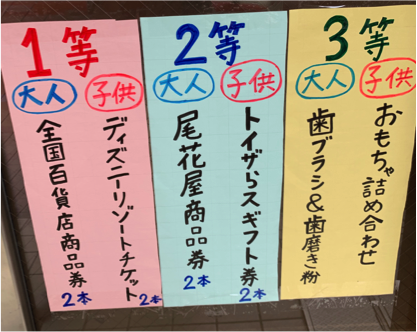 1等
大人
子供
全国百貨店商品券
2本
ディズニーリゾートチケット
2本
2等
大人
子供
尾花屋商品券
2本
トイザらスギフト券
2本
3等
大人
子供
歯ブラシ&歯磨き粉
おもちゃ詰め合わせ